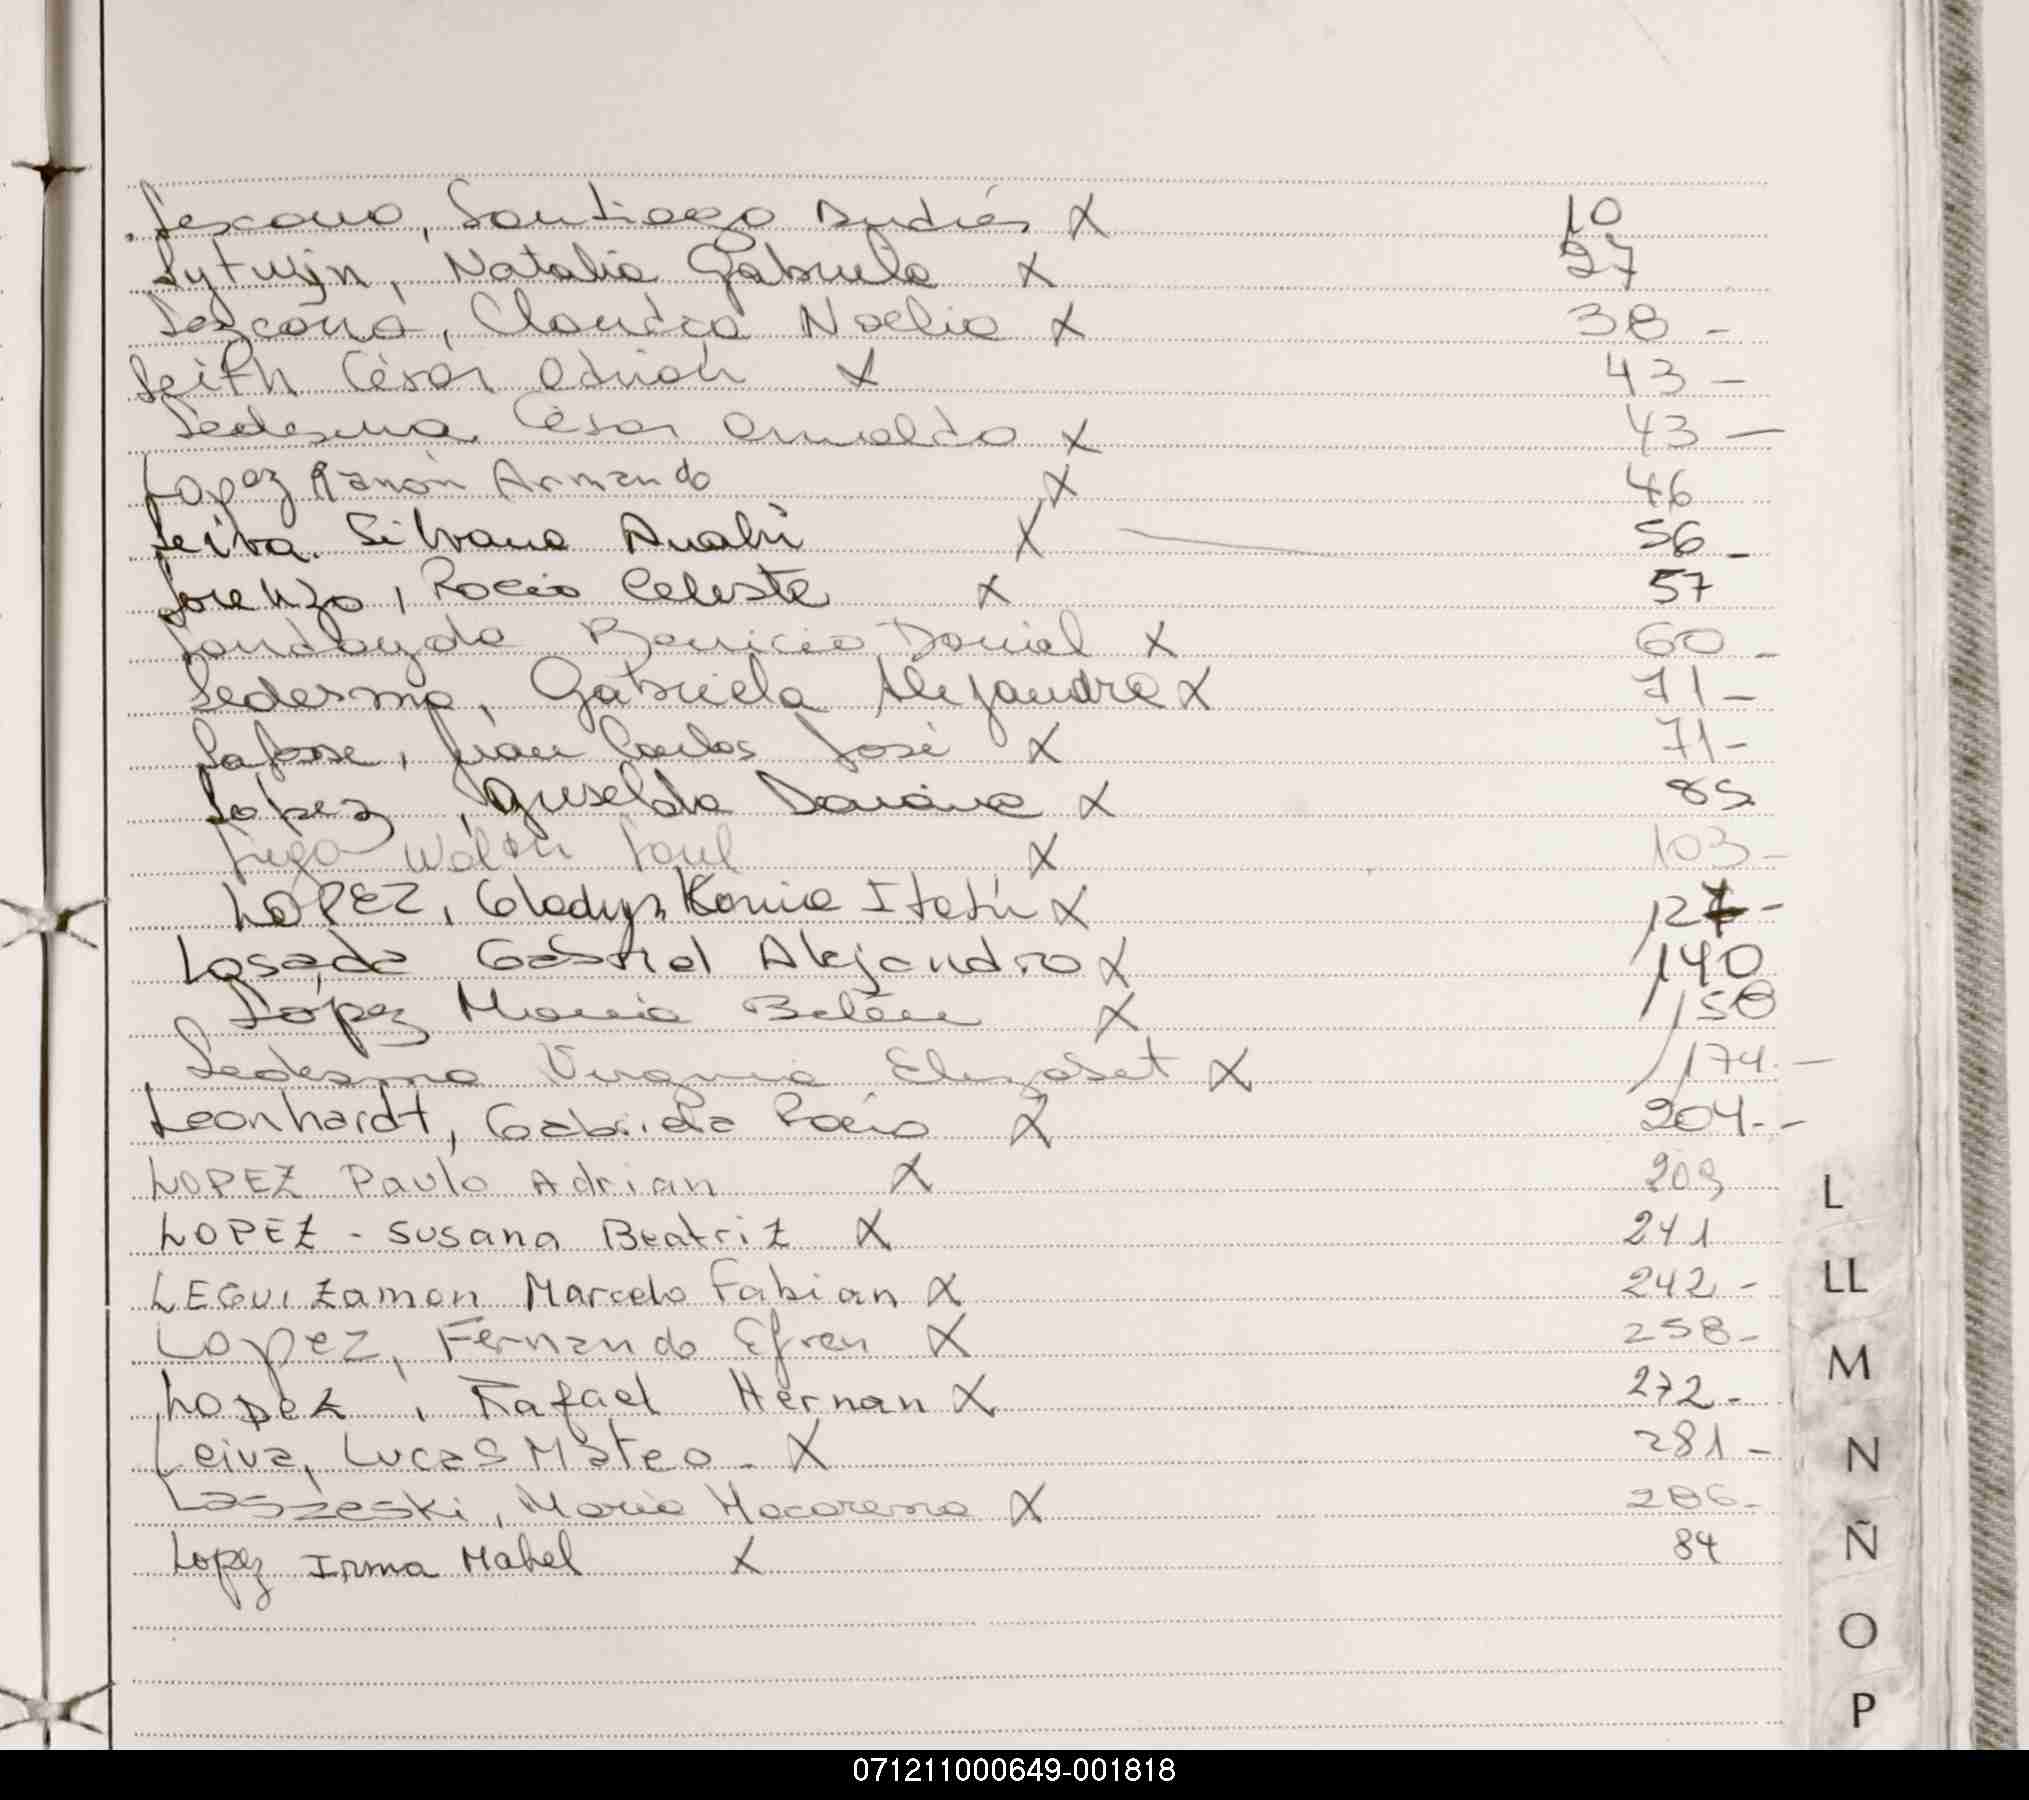 Lescano, Santiago Andrés X 10
Lytwyn, Natalia Gabriela X 27
Lezcano, Claudia Noelia X 38 -
Leith César Adrián X 43 -
Ledesma César Arnaldo X 43 -
Lopez Ramón Armando X 46
Leiva. Silvana Anahí X 56 -
Lorenzo, Rocío Celeste X 57
Benicio Daniel X 60 -
Ledesma, Gabriela Alejandra X 71 -
Juan Carlos José X 71 -
Lopez, Griselda X 85
Lugo Walter X 103 -
LOPEZ, Gladys Itatí X 127 -
Losada Gabriel Alejandro X 140
López María Belén X 158
Ledesma Virginia Elizabet X 174. -
Leonhardt, Gabriela Rocío X 204. -
LOPEZ Paulo Adrian X 209
LOPEZ - Susana Beatriz X 241
LEGUIZamon Marcelo Fabian X 242 -
Lopez, Fernando Efren X 258 -
Lopez, Rafael Hernan X 272 -
Leiva, Lucas Mateo - X 281 -
Laszeski, María Macarena X 286 -
Lopez Irma Mabel X 84
L
LL
M
N
Ñ
O
P
071211000649-001818